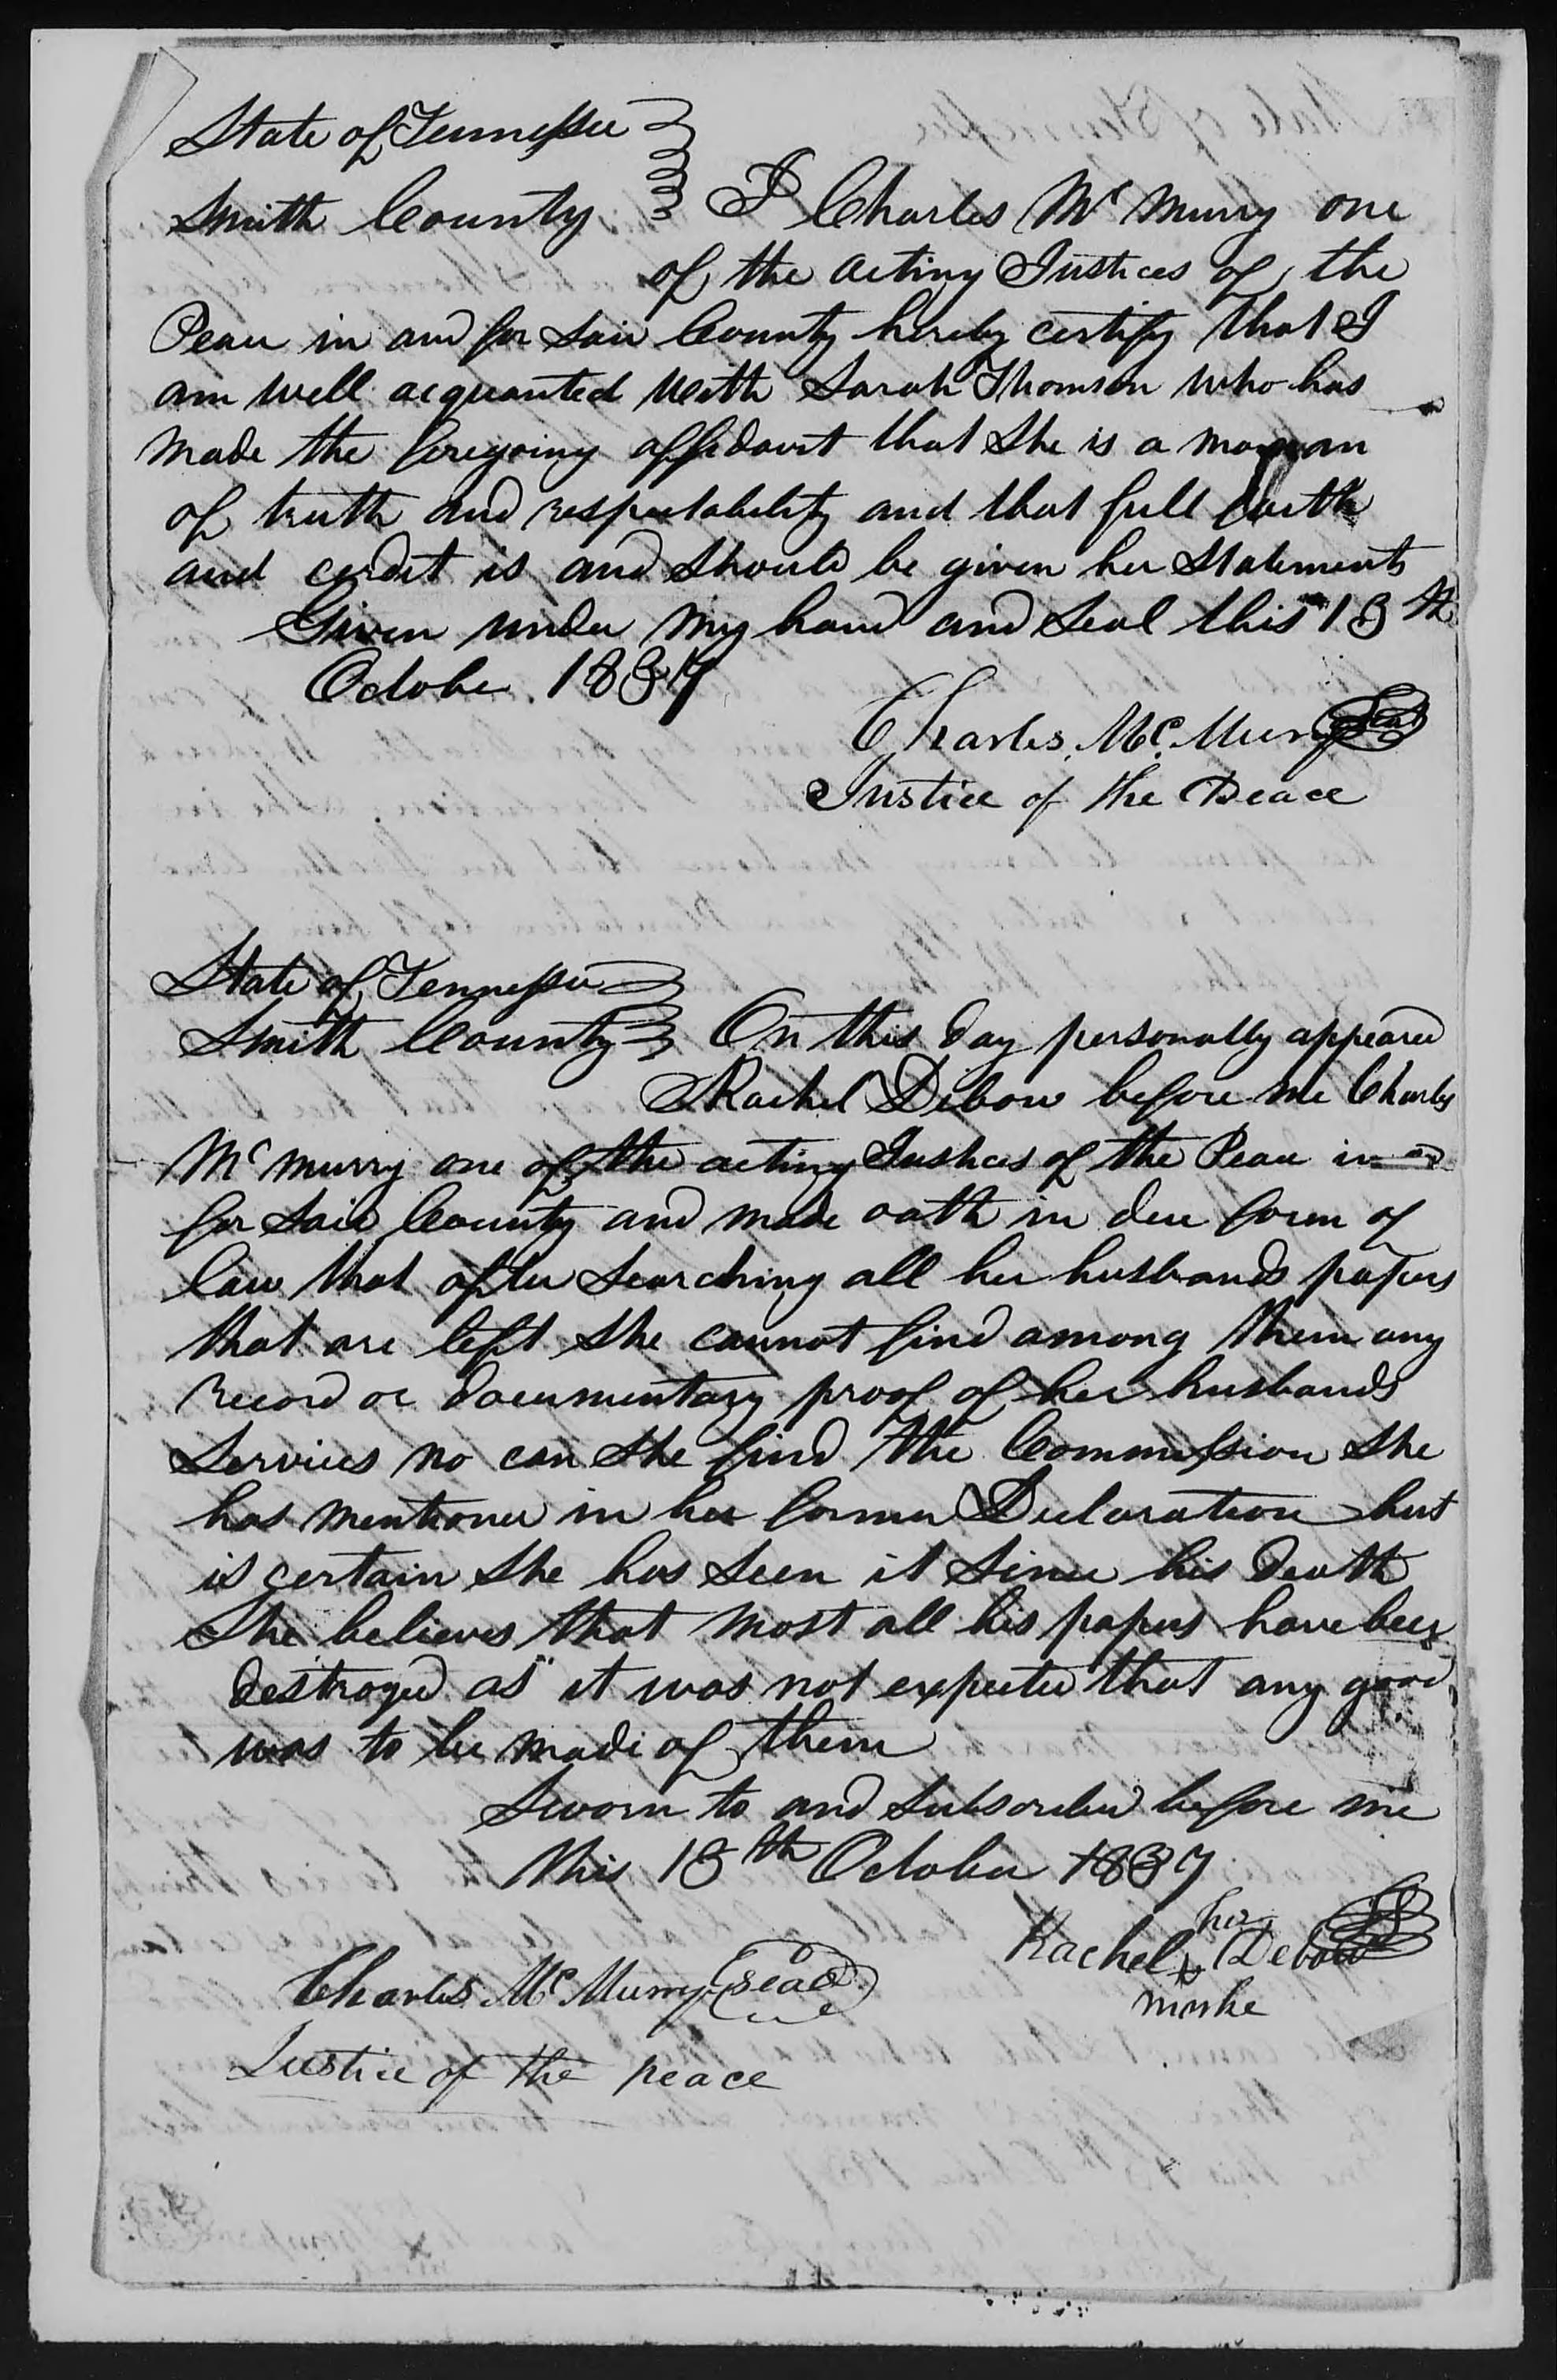 State of Tennessee
Smith County I Charles Mc Murry one
of the acting Justices of the
Peace in and for Said County hereby certify that I
am well acquanted With Sarah Thomson who has
made the foregoing affidavit that She is a woman
of truth and respectability and that full faith
and cerdit is and Should be given her Statements
Given under my hand and Seal this 13th
October 1837
Charles McMurry Seal
Justice of the Peace
State of Tennessee
Smith County On this day personally appeared
Rachel Debow before me Charles
Mc murry one of the acting Justices of the Peace in and
for Said County and made oath in due form of
law that after Searching all her husbands papers
that are left She cannot find among them any
record or documentary proof of her husbands
Services no can She find the Commission She
has mentioned in her former Declaration but
is certain She has Seen it Since his death
She believes that most all his papers have been
destroyed as it was not expected that any good
was to be made of them
Sworn to and Subscribed before me
this 13th October 1837
her
Rachel x Debow
marke
Charles McMurry (seal)
Justice of the peace